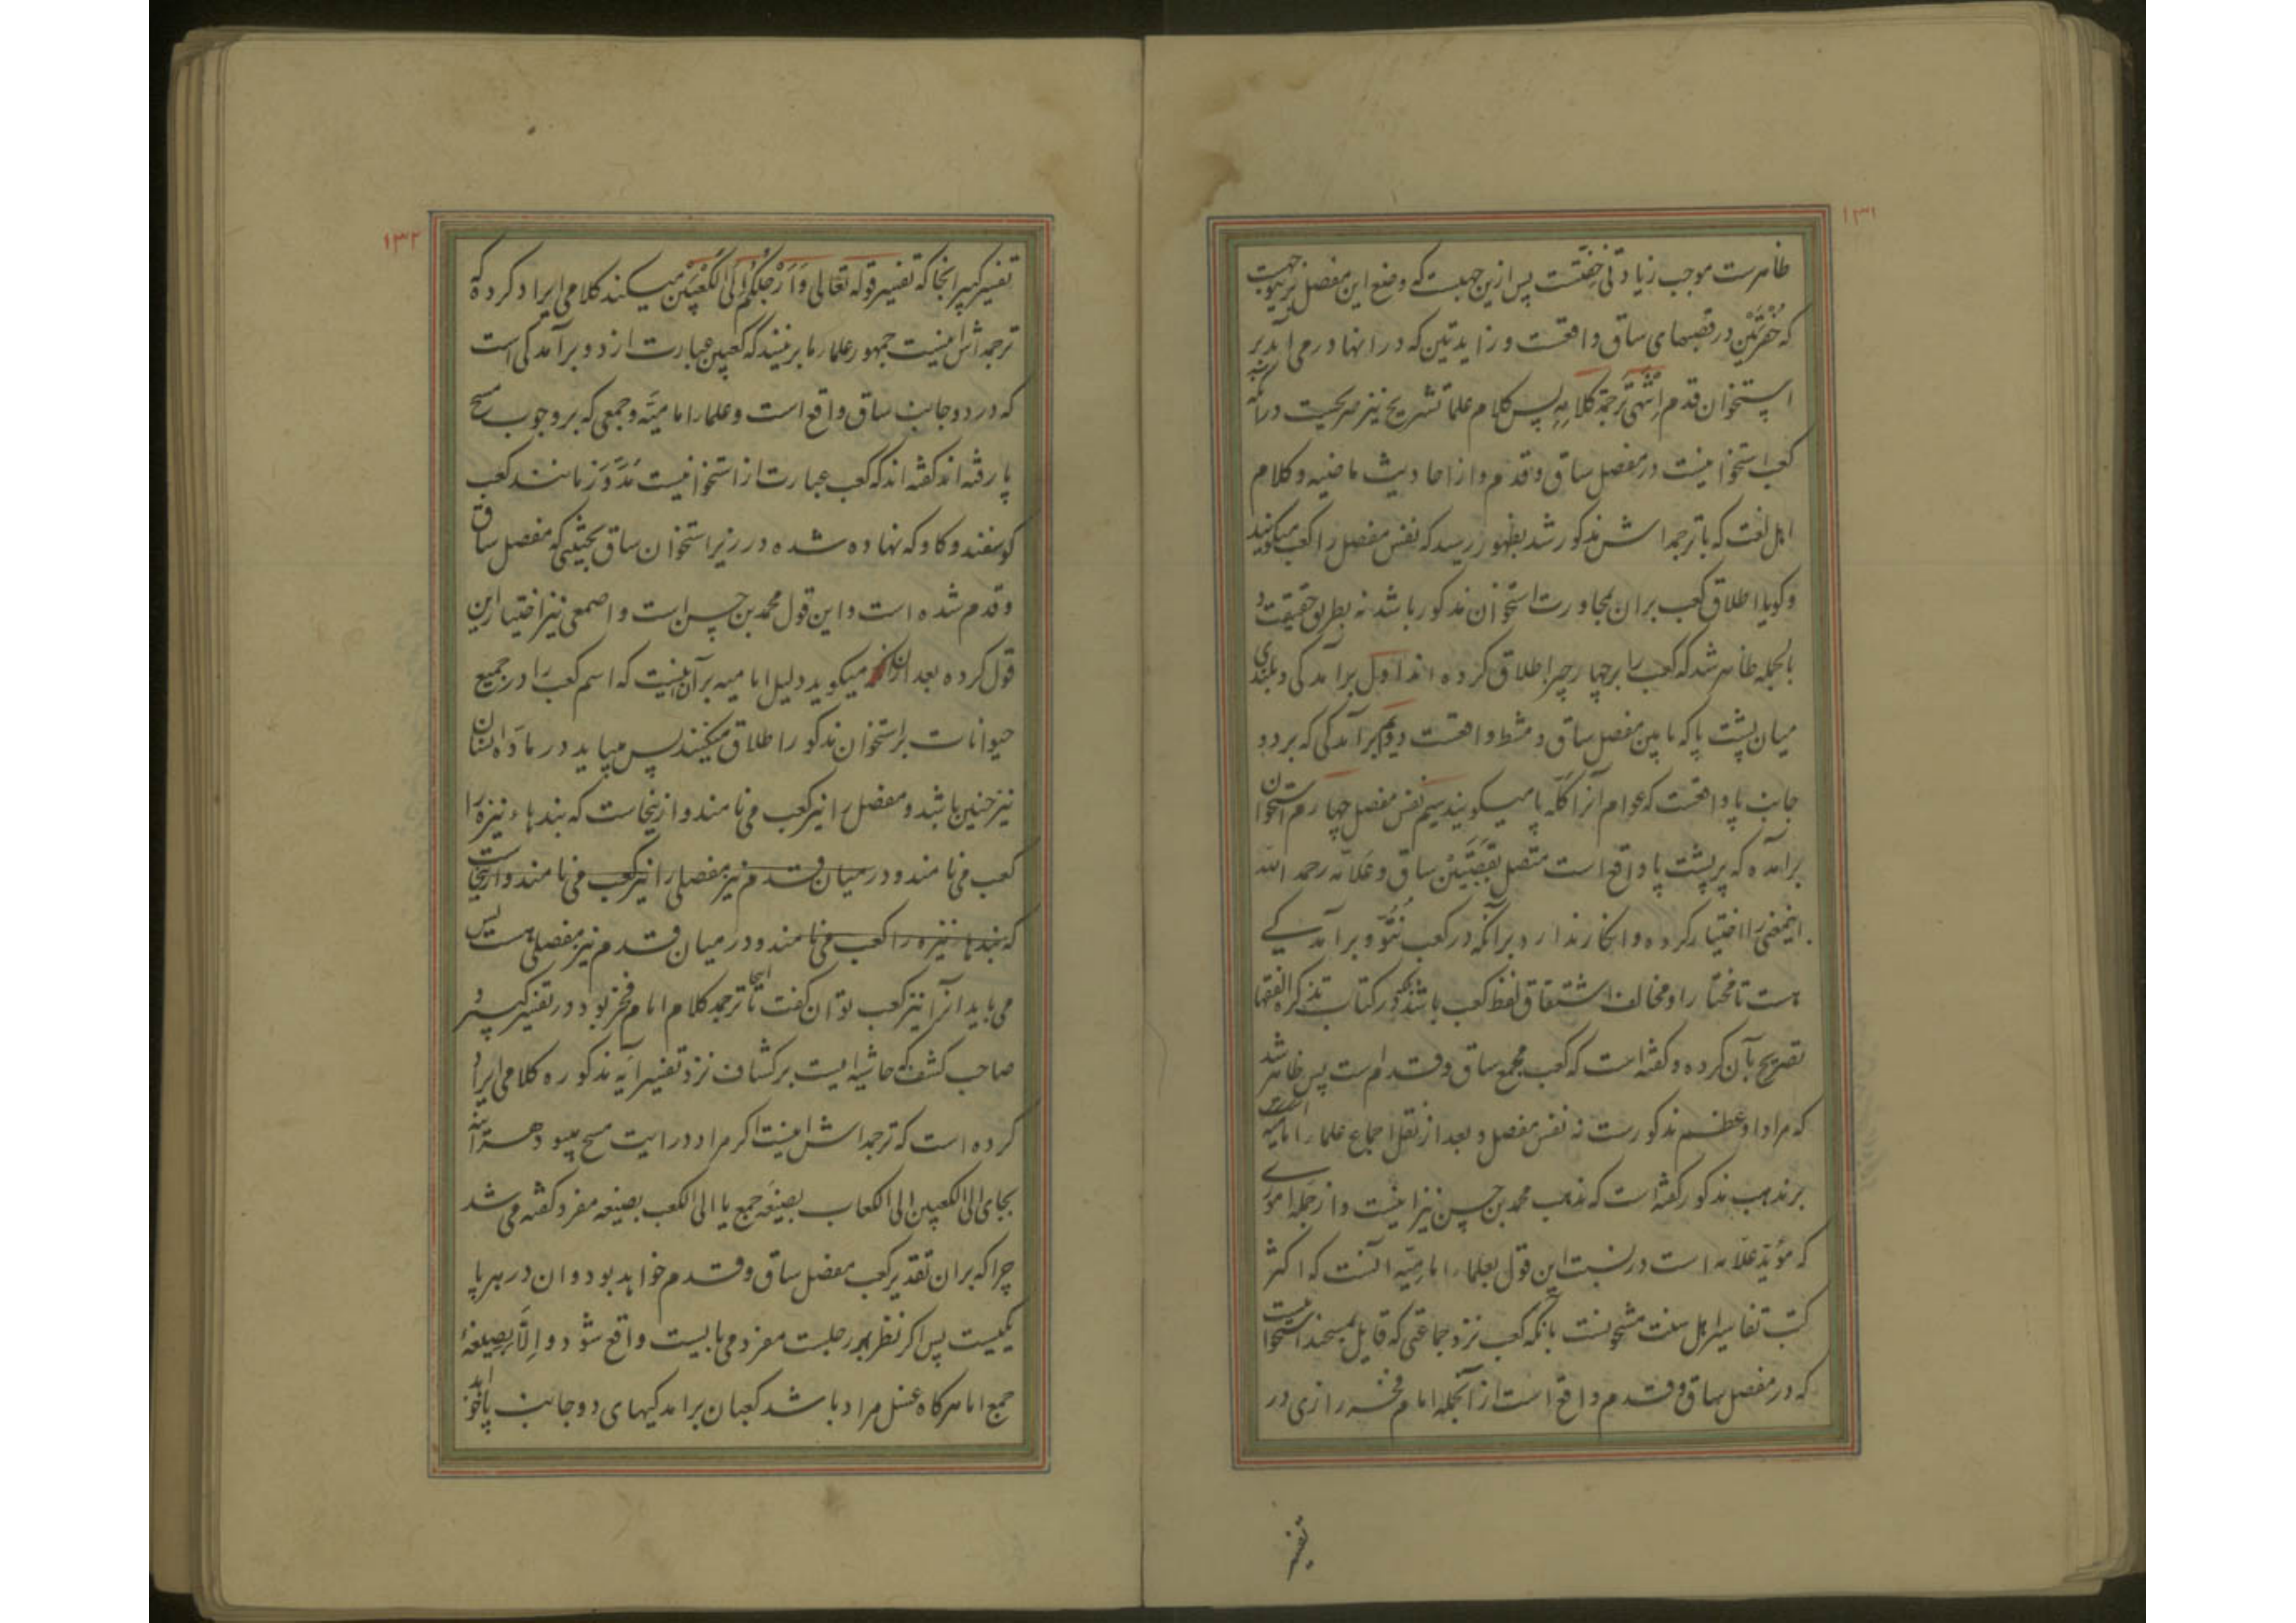 ۱۳۱
ظاهرست موجب زیادتی خفتست پس ازین جهتست که وضع این مفصل بریوجهت
که حفرتین در قصبهای ساق واقعست و زایدتین که در انها درمی آید بر
استخوان قدم اِنْتَهی تَرجَمة کلامِهِ پس کلام علما تشریح نیز صریحیت در آنکه
کعب استخوانیست در مفصل ساق و قدم و از احادیث ماضیه و کلام
اهل لغت که با ترجمه اش مذکور شد بظهور رسید که نفس مفصل را کعب میگویند
و کویا اطلاق کعب بران بمجاورت استخوان مذکور باشد نه بطریق حقیقت و
بالجمله ظاهر شد که کعب را بر چهار چیز اطلاق کرده اند اول برامدکی و بلندی
میان پشت پا که مابین مفصل ساق و مشط واقعست دویم برآمدکی که بر دو
جانب پا واقعست که عوام آنرا کله پا میکویند سیم نفس مفصل چهارم استخوان
برامده که بر پشت پا واقع است متصل بقصبتین ساق و علامه رحمه الله
اینمعنی را اختیار کرده و انکار ندارد برانکه در کعب نُتُوّ و برآمدکی
هست تا مختار او مخالف اشتقاق لفظ کعب باشد و در کتاب تذکرة الفقها
تصریح بآن کرده و کفته است که کعب مجمع ساق و قدم است پس ظاهر شد
که مراد او عظم مذکورست نه نفس مفصل و بعد از نقل اجماع علما امامیه
بر مذهب مذکور کفته است که مذهب محمد بن حسن نیز اینست و از جمله اموری
که مؤید علامه است در نسبت این قول بعلما امامیه آنست که اکثر
کتب تفاسیر اهل سنت مشحونست بانکه کعب نزد جماعتی که قایل بمسحند استخوانیست
که در مفصل ساق و قدم واقع است از آنجمله امام فخر رازی در
تفسیر
۱۳۲
تفسیر کبیر انجا که تفسیر قوله تعالی وَاَرْجُلَکُمْ اِلَی الْکَعْبَیْنِ میکند کلامی ایراد کرده که
ترجمه اش اینست جمهور علما برینند که کعبین عبارت از دو برآمدکی است
که در دو جانب ساق واقع است و علما امامیّه و جمعی که بر وجوب مسح
پا رفته اند کفته اند که کعب عبارت از استخوانیست مُدَوَّر مانند کعب
کوسفند و کاو که نهاده شده در زیر استخوان ساق بحیثیتی که مفصل ساق
و قدم شده است و این قول محمد بن حسن است و اصمعی نیز اختیار این
قول کرده بعد ازان میکوید دلیل امامیه برآن اینست که اسم کعب را در جمیع
حیوانات بر استخوان مذکور اطلاق میکنند پس میباید در ماده انسان
نیز چنین باشد و مفصل را نیز کعب می نامند و ازینجاست که بندهاء نیزه را
کعب می نامند و در میان قدم نیز مفصلی را نیز کعب می نامند و ازینجاست
که بندهاء نیزه را کعب می نامند و در میان قدم نیز مفصلی هست پس
می باید انرا نیز کعب توان کفت تا اینجا ترجمه کلام امام فخر بود در تفسیر کبیر و
صاحب کشف که حاشیه ایست بر کشاف نزد تفسیر آیه مذکوره کلامی ایراد
کرده است که ترجمه اش اینست اکر مراد در ایت مسح میبود هر آینه
بجای الی الکعبین الی الکعاب بصیغه جمع یا الی الکعب بصیغه مفرد کفته می شد
چرا که بران تقدیر کعب مفصل ساق و قدم خواهد بود و ان در هر پا
یکیست پس اکر نظر بهر رجلست مفرد می بایست واقع شود و اِلّا بصیغهٔ
جمع اما هرکاه غسل مراد باشد کعبان برامدکیهای دو جانب پا خواهد